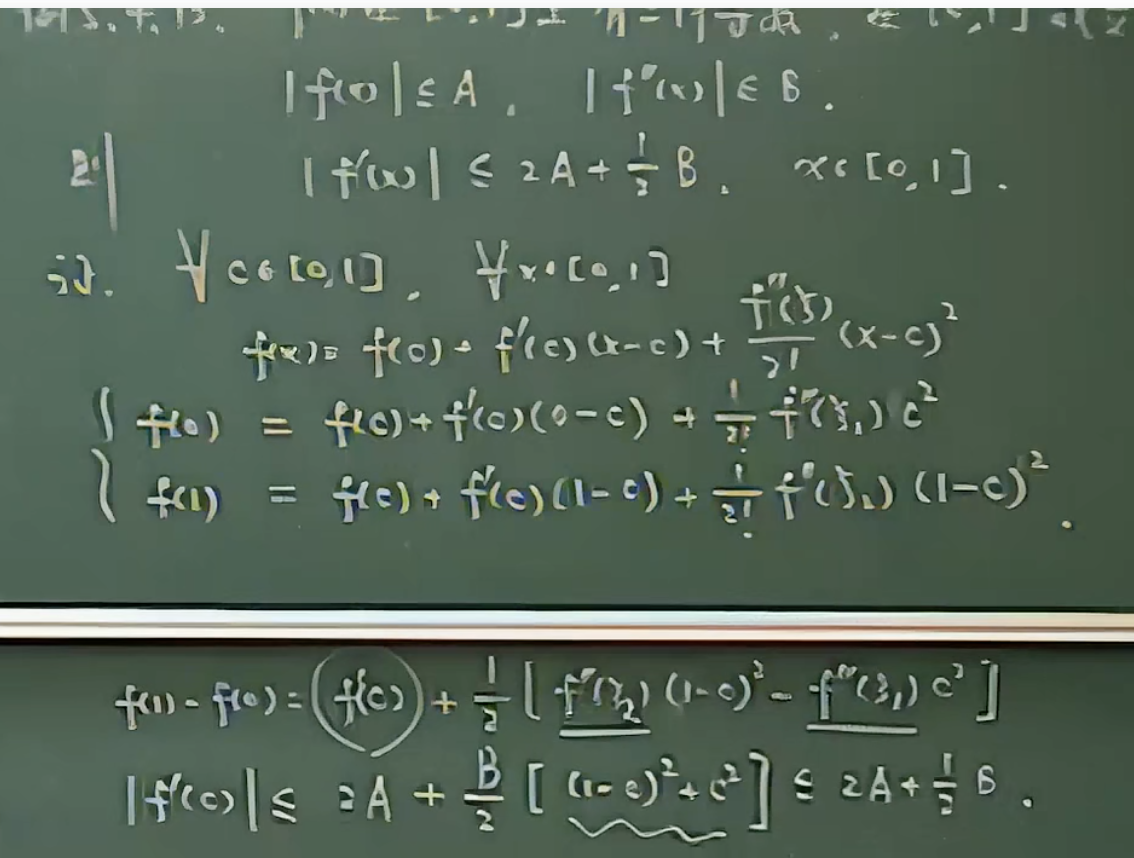 |f(x)| ≤ A, |f''(x)| ≤ B.
则 |f'(x)| ≤ 2A + 1/2 B, x∈[0,1].
证. ∀c∈[0,1], ∀x∈[0,1]
f(x) = f(c) + f'(c)(x-c) + f''(ξ)/2! (x-c)²
{ f(0) = f(c) + f'(c)(0-c) + 1/2! f''(ξ₁) c²
{ f(1) = f(c) + f'(c)(1-c) + 1/2! f''(ξ₂) (1-c)².
f(1) - f(0) = f'(c) + 1/2 [ f''(ξ₂) (1-c)² - f''(ξ₁) c² ]
|f'(c)| ≤ 2A + B/2 [ (1-c)² + c² ] ≤ 2A + 1/2 B.